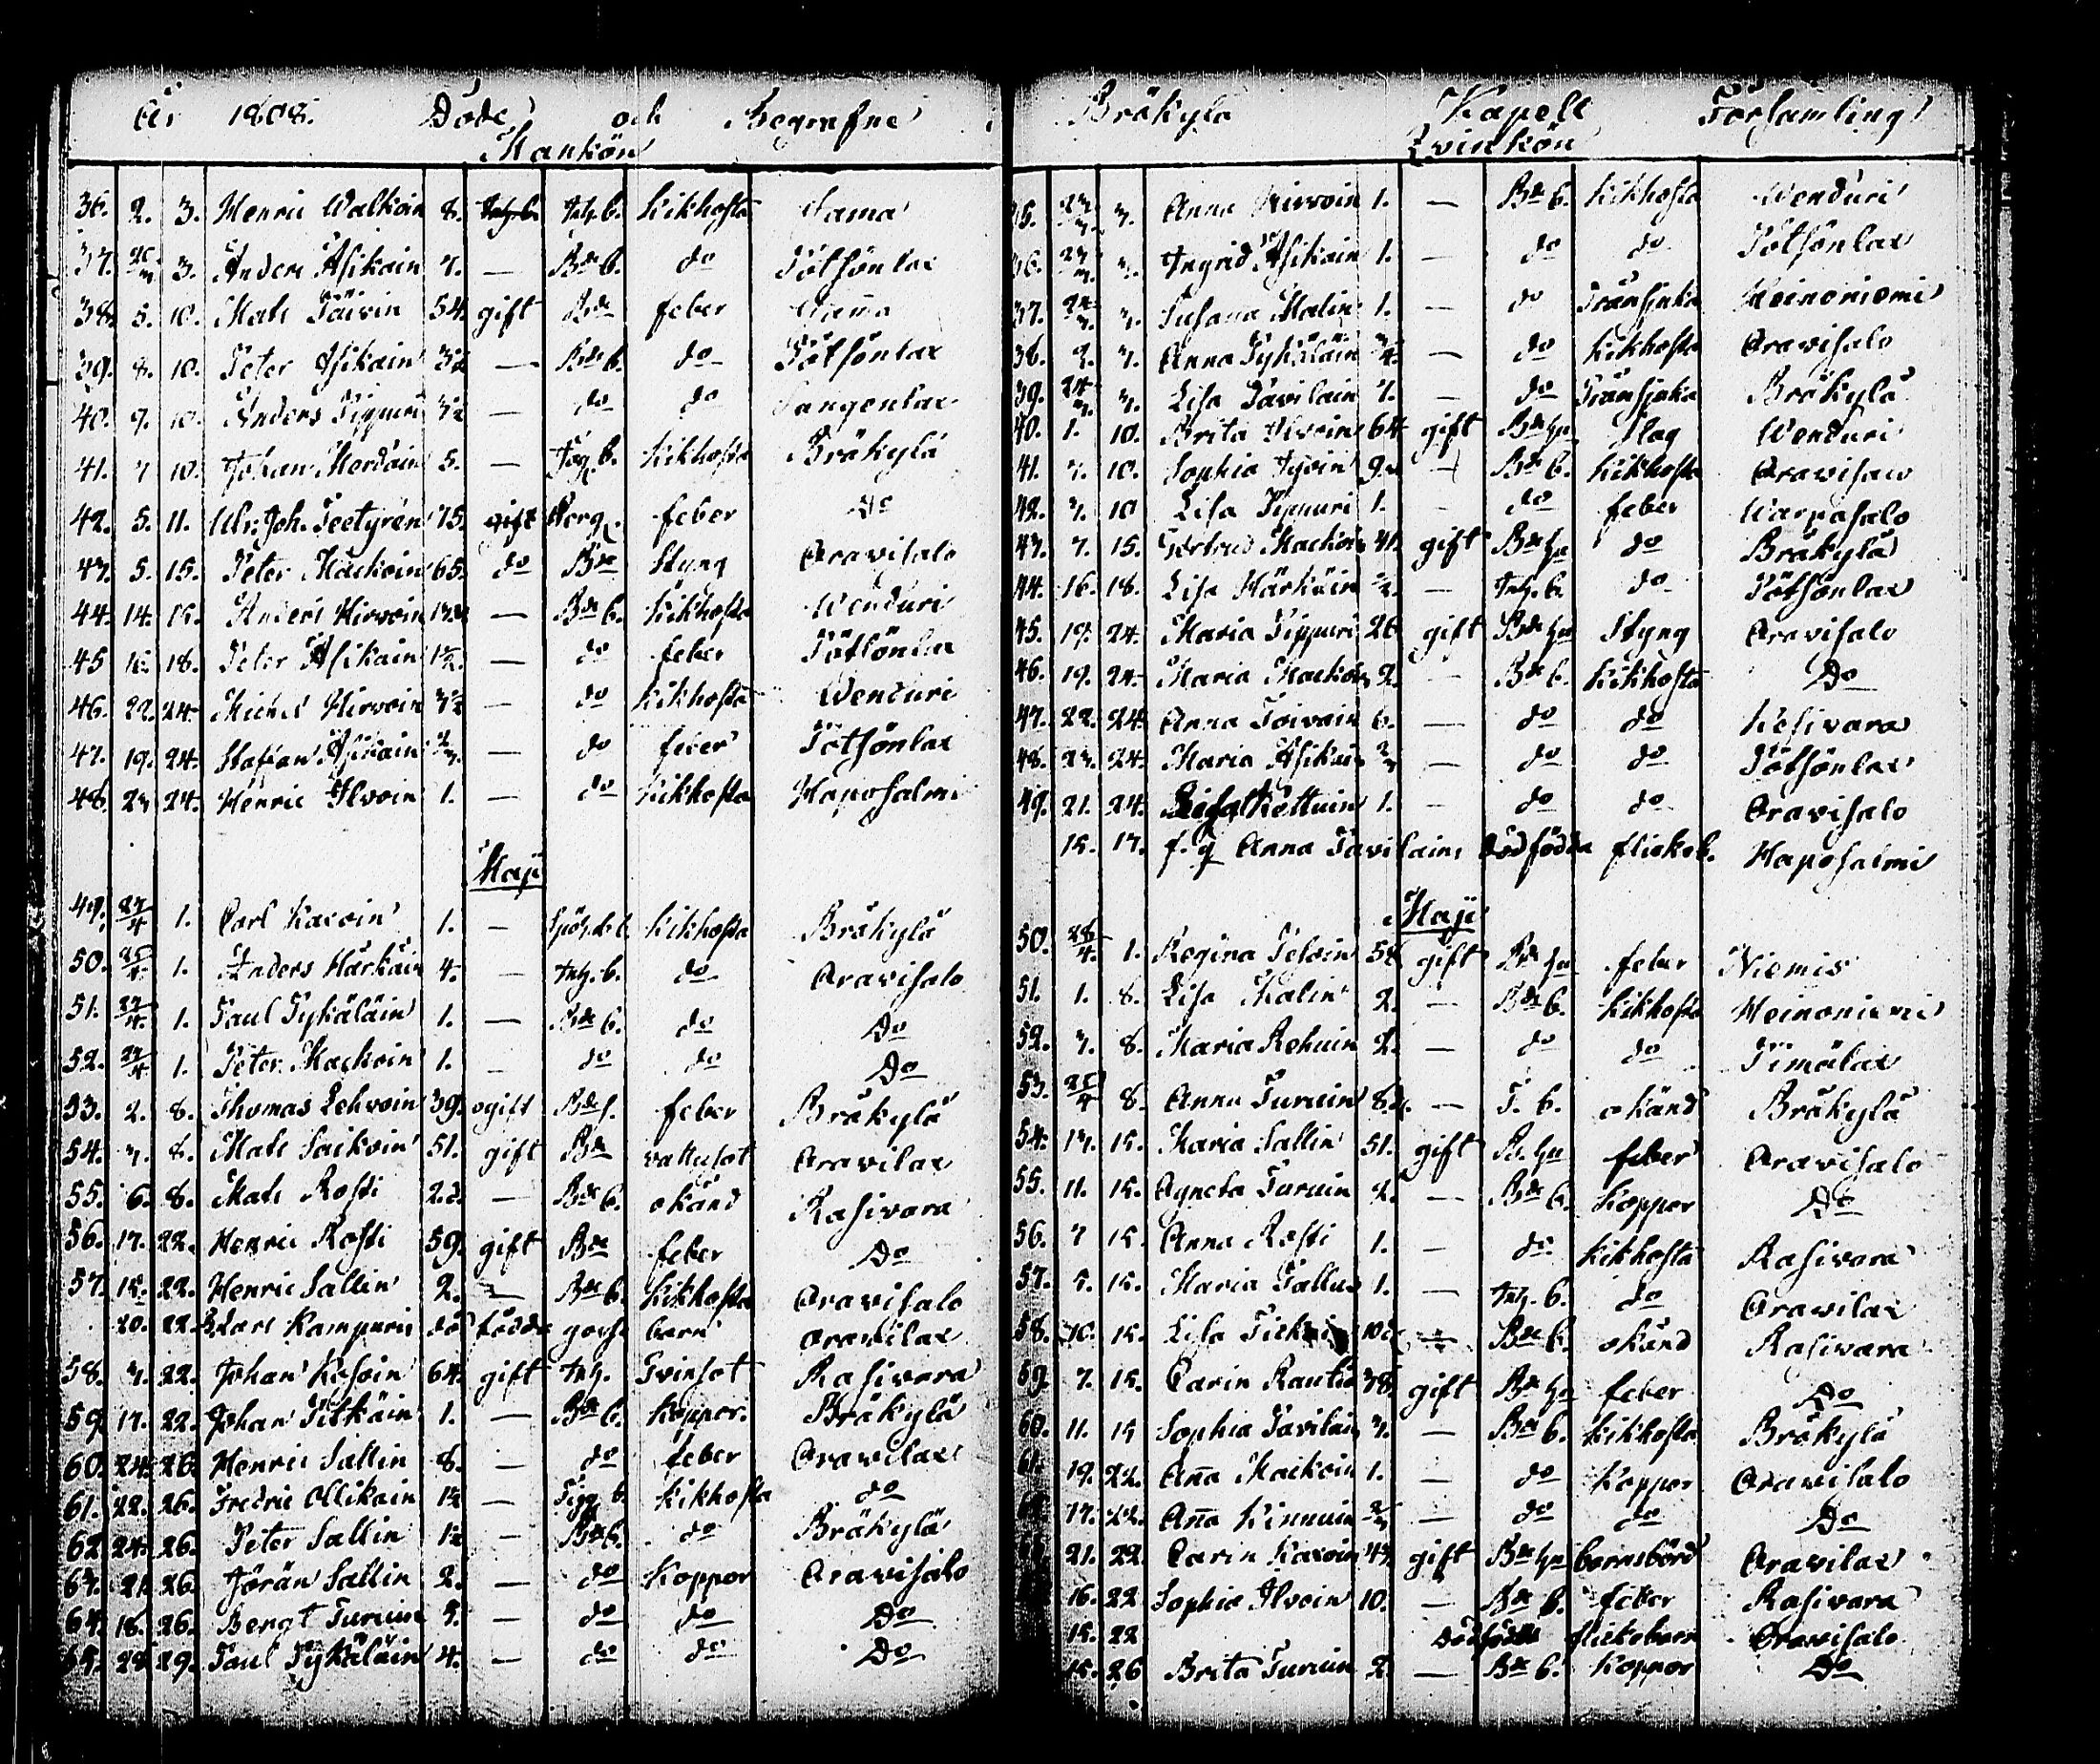 År 1808. Döde och Begrafne
Mankön
36. 2. 3. Henric Walkoin 8. Inh. b. Kikhosta Jama
37. 3. Anders Asikain 7. — Bde b. do Pötsönlax
38. 5. 10. Mats Päivin 54. gift Bde feber
39. 8. 10. Peter Asikain — Bde b. do Pötsönlax
40. 9. 10. Anders Pippuri — do do Sangenlax
41. 7 10. Johan Merdain 5. — b. Kikhosta Bräkylä
42. 5. 11. Joh. Teetyrén 75. feber do
43. 5. 15. Peter Mackoin 65. do Bde Styng Oravisalo
44. 14. 15. Anders Hirvoin — Bde b. Kikhosta Wenduri
45 18. Peter Asikain 1½. — do feber Pötsönlax
46. 22. 24. Michel Hirvoin — do Kikhosta Wenduri
47. 19. 24. Stafan Asikain — do feber Pötsönlax
48. 23 24. Henric Ilvoin 1. — do Kikhosta Haposalmi
Maji
49. 27/4 1. Carl Karvoin 1. — Kikhosta Bräkylä
50. 25/4 1. Anders Härkäin 4. — Inh. b. do Oravisalo
51. 27/4. 1. Paul Pykäläin 1. — Bde b. do Do
52. 27/4 1. Peter Mackoin 1. — do do Do
53. 2. 8. Thomas Lehvoin 39. ogift Bde s. feber Bräkylä
54. 7. 8. Mats Saikoin 51. gift Bde vattusot Oravilax
55. 6. 8. Mats Rosti 2.d. — Bde b. okänd Rasivara
56. 17. 22. Henric Rosti 59. gift Bde feber Do
57. 15. 22. Henric Sallin 2. — Bde b. Kikhosta Oravisalo
20. 22. Lars Kampuris död födde gosse barn Oravilax
58. 7. 22. Johan Kasoin 64. gift Inh. Tvinsot Rasivara
59. 17. 22. Johan Pitkäin 1. — Bde b. Koppor. Bräkylä
60. 24. 26. Henric Sallin 8. — do feber Oravilax
61. 22. 26. Fredric Ollikain 1½ — b. Kikhosta do
62 24. 26. Peter Sallin 1½ — Bde b. do Bräkylä
63. 21. 26. Jöran Sallin 2. — do Koppor Oravisalo
64. 18. 26. Bengt Turuin — do do Do
65. 28 29. Paul Pykäläin 4. — do do Do
Bräkylä Kapell Församling
Qvinkön
35. Anna Hirvoin 1. — Bde b. Kikhosta Wenduri
36. Ingrid Asikain 1. — do do Pötsönlax
37. Susana Malin 1. — do Tränsjuka Heinoniemi
38. 2. Anna Pykäläin — do Kikhosta Oravisalo
39. Lisa Pavilain — do Tränsjuka Bräkylä
40. 1. 10. Brita Ilvoin 64 gift Bde hu Slag Wenduri
41. 7. 10. Sophia — Bde b. Kikhosta Oravisalo
42. 7. 10 Lisa Pippuri 1. — do feber Warpasalo
43. 7. 15. Gertrud Mackoin 41. gift Bde hu do Bräkylä
44. 16. 18. Lisa Härkäin — Inh. b. do Pötsönlax
45. 17. 24. Maria Pippuri 26 gift Bde hu Styng Oravisalo
46. 19. 24. Maria Mackoin 2. — Bde b. Kikhosta Do
47. 22. 24. Anna Toivain 6. — do do Kesivara
48. 23. 24. Maria Asikain — do do Pötsönlax
49. 21. 24. Lisa Kettuin 1. — do do Oravisalo
15. 17. f. q Anna Pavilains dödfödda flickeb. Haposalmi
Maji
50. 28/4. 1. Regina Peloin 58 gift Bde hu feber Niemis
51. 1. 8. Lisa Malin 2. — Bde b. Kikhosta Heinoniemi
52. 7. 8. Maria Rehuin 2. — do do Pimälax
53. 25/4 8. Anna Turuin — b. okänd Bräkylä
54. 13. 15. Maria Sallin 51. gift B. hu feber Oravisalo
55. 11. 15. Agneta Turuin 2. — Bde b. Koppor Do
56. 7 15. Anna Rosti 1. — do Kikhosta Rasivara
57. 7. 15. Maria 1. — Inh. b. do Oravilax
58. 10. 15. Lisa — Bde b. okänd Rasivara
59. 7. 15. Carin Rautia 38. gift Bde hu feber Do
60. 11. 15 Sophia Pavilain 7. — Bde b. Kikhosta Bräkylä
61. 19. 22. Aña Mackoin 1. — do Koppor Oravisalo
17. 22. Aña Kinnuin — do do Do
21. 22. Carin Karvoin 43. gift Bde hu barnsbörd Oravilax
16. 22 Sophia Ilvoin 10. — Bde b. feber Rasivara
15. 22 dödfödde flickebarn Oravisalo
15. 26 Brita Turuin 2. — Bde b. Koppor Do